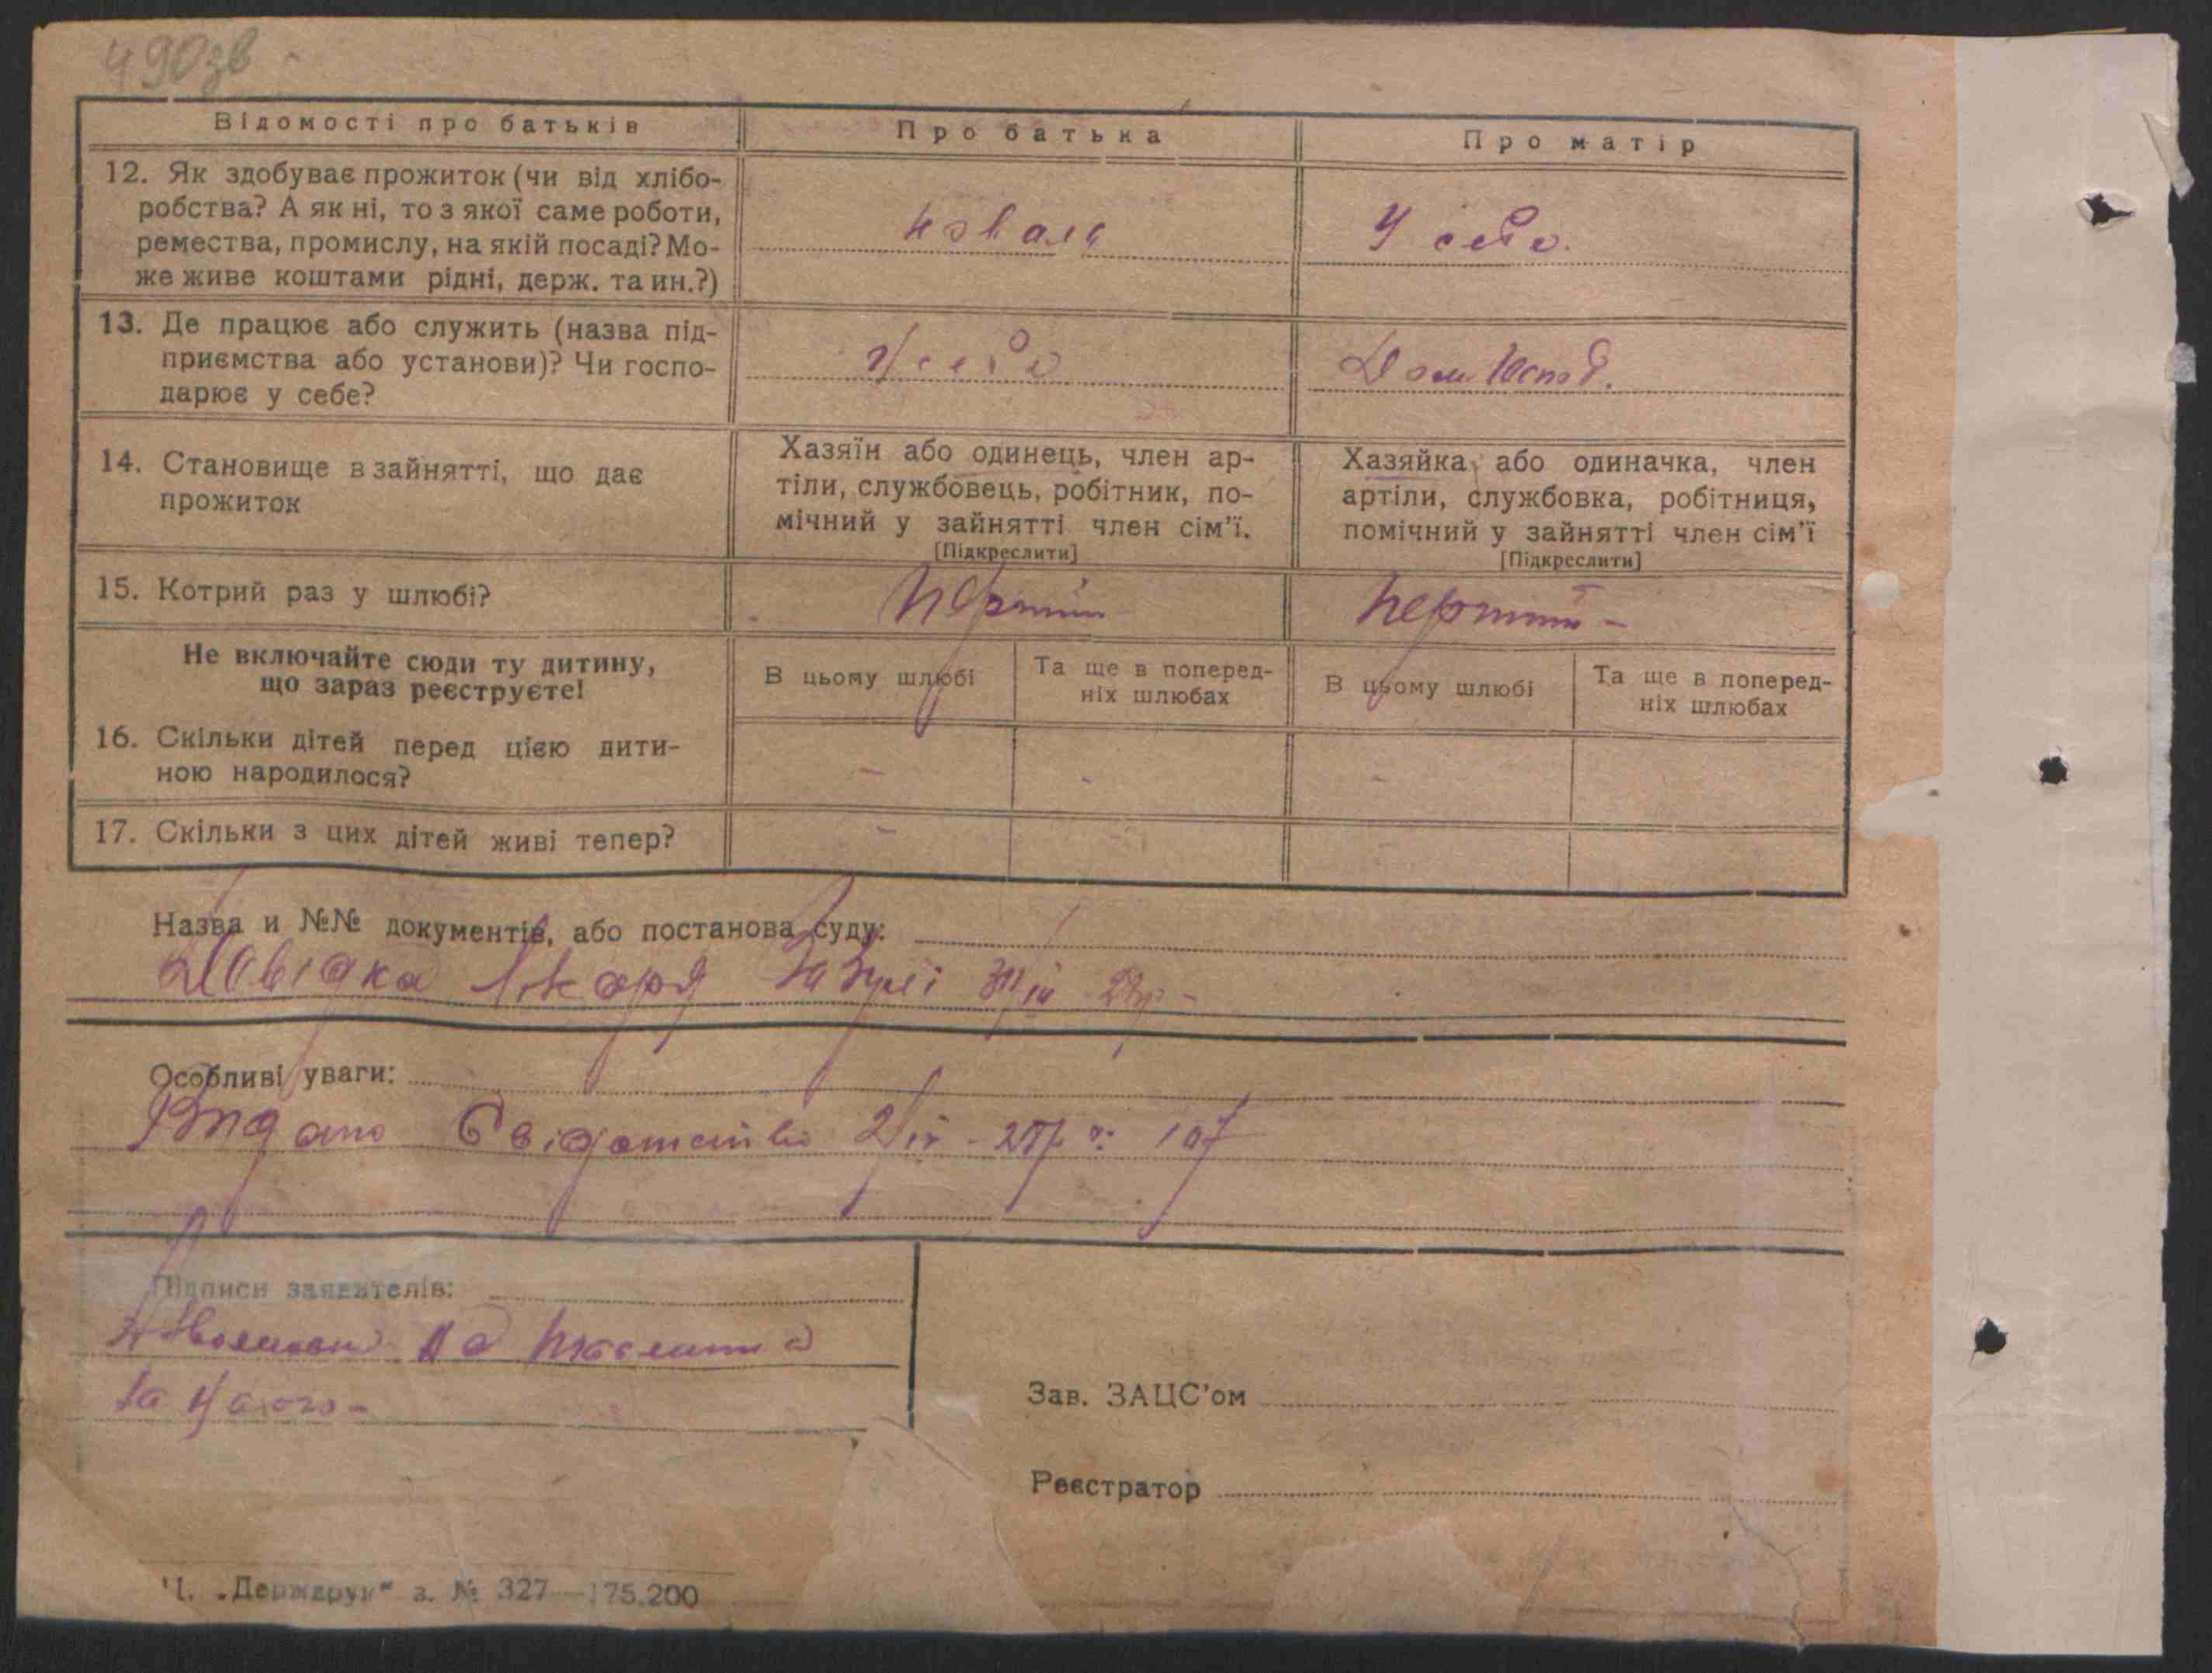 490зв
Відомості про батьків
Про батька
Про матір
12. Як здобуває прожиток (чи від хлібо-
робства? А як ні, то з якої саме роботи,
ремества, промислу, на якій посаді? Мо-
же живе коштами рідні, держ. та ин.?)
коваль
У себе.
13. Де працює або служить (назва під-
приємства або установи)? Чи госпо-
дарює у себе?
У себе
Дом Господ.
14. Становище в зайнятті, що дає
прожиток
Хазяїн або одинець, член ар-
тіли, службовець, робітник, по-
мічний у зайнятті член сім'ї.
[Підкреслити]
Хазяйка, або одиначка, член
артіли, службовка, робітниця,
помічний у зайнятті член сім'ї
[Підкреслити]
15. Котрий раз у шлюбі?
Перший
Перший -
Не включайте сюди ту дитину,
що зараз реєструєте!
В цьому шлюбі
Та ще в поперед-
ніх шлюбах
В цьому шлюбі
Та ще в поперед-
ніх шлюбах
16. Скільки дітей перед цією дити-
ною народилося?
-
-
-
17. Скільки з цих дітей живі тепер?
-
-
Назва и №№ документів, або постанова суду:
Довідка Лікаря
Особливі уваги:
Видано Свідотство 107
Підписи заявителів:
Зав. ЗАЦС'ом
Реєстратор
Ч. „Держдрук" з. № 327—175.200